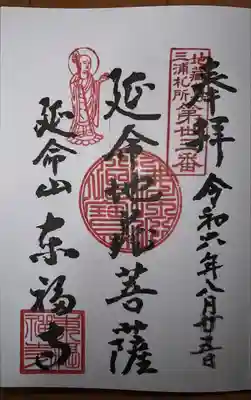 奉拝
令和六年八月廿五日
地蔵尊
三浦札所
延命地蔵菩薩
延命山
東福寺